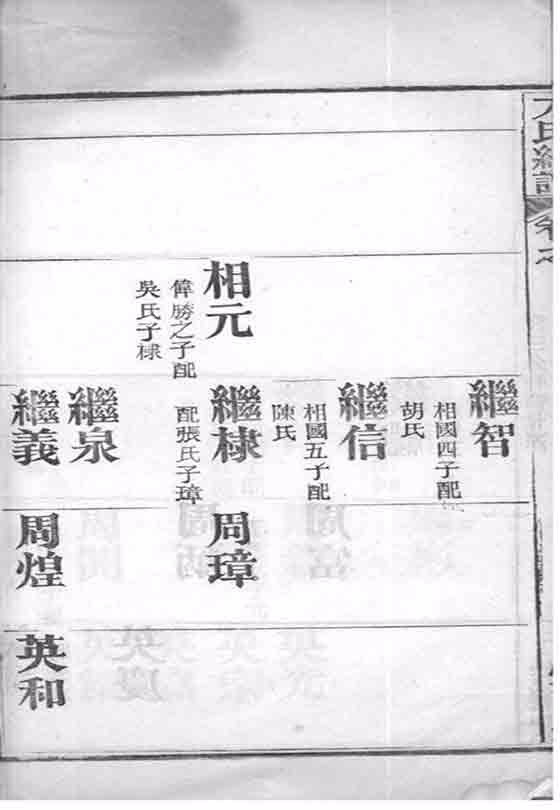 氏繼譜
相元
偉勝之子配
吳氏子棣
繼智
相國四子配
胡氏
繼信
相國五子配
陳氏
繼棣
配張氏子璋
繼泉
繼義
周璋
周煌
英和